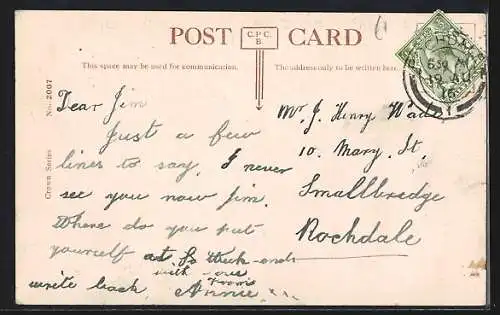 POST CARD
C.P.C.
B.
This space may be used for communication.
The address only to be written here.
Crown Series No. 2007
6
19 AU
15
1
Dear Jim
Just a few
lines to say, I never
see you now Jim.
Where do you put
yourself at week-ends
write back with love
From
Annie xxx
Mr. J. Henry Wade
10. Mary. St.
Smallbredge
Rochdale